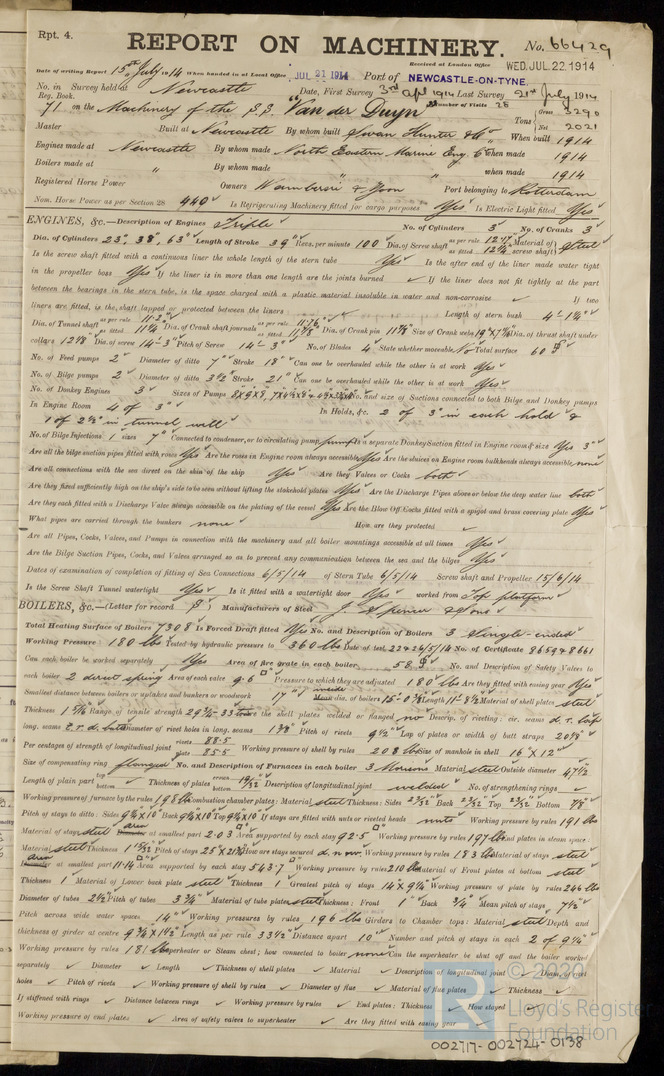 Rpt. 4.
REPORT ON MACHINERY. No. 66429
Received at London Office WED. JUL. 22. 1914
Date of writing Report 15th July 1914 When handed in at Local Office JUL 21 1914 Port of NEWCASTLE-ON-TYNE.
No. in Survey held at Newcastle Date, First Survey 3rd Apl 1914 Last Survey 21st July 1914
Reg. Book. Number of Visits 28
71 on the Machinery of the S.S. "Van der Duyn" Tons Gross 3290 Net 2021
Master Built at Newcastle By whom built Swan Hunter & Co When built 1914
Engines made at Newcastle By whom made North Eastern Marine Eng. Co when made 1914
Boilers made at " By whom made " when made 1914
Registered Horse Power Owners & Zoon Port belonging to Rotterdam
Nom. Horse Power as per Section 28 440 Is Refrigerating Machinery fitted for cargo purposes Yes Is Electric Light fitted Yes
ENGINES, &c.—Description of Engines Triple No. of Cylinders 3 No. of Cranks 3
Dia. of Cylinders 23", 38", 63" Length of Stroke 39" Revs. per minute 100 Dia. of Screw shaft as per rule as fitted Material of screw shaft Steel
Is the screw shaft fitted with a continuous liner the whole length of the stern tube Yes Is the after end of the liner made water tight
in the propeller boss Yes If the liner is in more than one length are the joints burned If the liner does not fit tightly at the part
between the bearings in the stern tube, is the space charged with a plastic material insoluble in water and non-corrosive If two
liners are fitted, is the shaft lapped or protected between the liners Length of stern bush 4'-1¼"
Dia. of Tunnel shaft as per rule as fitted 11¼ Dia. of Crank shaft journals as per rule as fitted 11⅞ Dia. of Crank pin 11⅞ Size of Crank webs 19"x7¼ Dia. of thrust shaft under
collars 12⅛ Dia. of screw 14'-3" Pitch of Screw 14'-3" No. of Blades 4 State whether moveable No Total surface 60
No. of Feed pumps 2 Diameter of ditto 7" Stroke 18" Can one be overhauled while the other is at work Yes
No. of Bilge pumps 2 Diameter of ditto 3½ Stroke 21" Can one be overhauled while the other is at work Yes
No. of Donkey Engines 3 Sizes of Pumps No. and size of Suctions connected to both Bilge and Donkey pumps
In Engine Room 4 of 3" In Holds, &c. 2 of 3" in each hold &
1 of 2½" in tunnel well
No. of Bilge Injections 1 sizes 7" Connected to condenser, or to circulating pump pump Is a separate Donkey Suction fitted in Engine room & size Yes 3"
Are all the bilge suction pipes fitted with roses Yes Are the roses in Engine room always accessible Yes Are the sluices on Engine room bulkheads always accessible none
Are all connections with the sea direct on the skin of the ship Yes Are they Valves or Cocks both
Are they fixed sufficiently high on the ship's side to be seen without lifting the stokehold plates Yes Are the Discharge Pipes above or below the deep water line both
Are they each fitted with a Discharge Valve always accessible on the plating of the vessel Yes Are the Blow Off Cocks fitted with a spigot and brass covering plate Yes
What pipes are carried through the bunkers none How are they protected
Are all Pipes, Cocks, Valves, and Pumps in connection with the machinery and all boiler mountings accessible at all times Yes
Are the Bilge Suction Pipes, Cocks, and Valves arranged so as to prevent any communication between the sea and the bilges Yes
Dates of examination of completion of fitting of Sea Connections 6/5/14 of Stern Tube 6/5/14 Screw shaft and Propeller 15/6/14
Is the Screw Shaft Tunnel watertight Yes Is it fitted with a watertight door Yes worked from Top platform
BOILERS, &c.—(Letter for record S) Manufacturers of Steel J. Spencer & Sons
Total Heating Surface of Boilers 7308 Is Forced Draft fitted Yes No. and Description of Boilers 3 Single-ended
Working Pressure 180 lbs Tested by hydraulic pressure to 360 lbs Date of test 22 & 26/5/14 No. of Certificate 8659 & 8661
Can each boiler be worked separately Yes Area of fire grate in each boiler 58 No. and Description of Safety Valves to
each boiler 2 direct spring Area of each valve 9.6 Pressure to which they are adjusted 180 lbs Are they fitted with easing gear Yes
Smallest distance between boilers or uptakes and bunkers or woodwork 17" inside dia. of boilers 15'-0⅜ Length 11'-8½ Material of shell plates steel
Thickness Range of tensile strength Are the shell plates welded or flanged no Descrip. of riveting: cir. seams d.r. lap
long. seams t.r.d. butts Diameter of rivet holes in long. seams 1⅜ Pitch of rivets 9½ Lap of plates or width of butt straps 20⅛
Per centages of strength of longitudinal joint rivets 88.5 plate 85.5 Working pressure of shell by rules 208 lbs Size of manhole in shell 16"x12"
Size of compensating ring flanged No. and Description of Furnaces in each boiler 3 Morisons Material steel Outside diameter 47½
Length of plain part top bottom Thickness of plates crown bottom 19/32 Description of longitudinal joint welded No. of strengthening rings
Working pressure of furnace by the rules 198 lbs Combustion chamber plates: Material steel Thickness: Sides 23/32 Back 23/32 Top 23/32 Bottom 7/8
Pitch of stays to ditto: Sides 9¼x10 Back 9¼x10 Top 9¼x10 If stays are fitted with nuts or riveted heads nuts Working pressure by rules 191 lbs
Material of stays steel area at smallest part 2.03 Area supported by each stay 92.5 Working pressure by rules 197 lbs End plates in steam space:
Material steel Thickness Pitch of stays How are stays secured d.n.w. Working pressure by rules 183 lbs Material of stays steel
area at smallest part Area supported by each stay 543.7 Working pressure by rules 210 lbs Material of Front plates at bottom steel
Thickness 1 Material of Lower back plate steel Thickness 1 Greatest pitch of stays 14"x9¼ Working pressure of plate by rules 246 lbs
Diameter of tubes 2½ Pitch of tubes 3¾ Material of tube plates steel Thickness: Front 1" Back ¾" Mean pitch of stays 7½
Pitch across wide water spaces 14" Working pressures by rules 196 lbs Girders to Chamber tops: Material steel Depth and
thickness of girder at centre 9¾x1½ Length as per rule 33½ Distance apart 10" Number and pitch of stays in each 2 of 9¼"
Working pressure by rules 181 lbs Superheater or Steam chest; how connected to boiler none Can the superheater be shut off and the boiler worked
separately Diameter Length Thickness of shell plates Material Description of longitudinal joint Diam. of rivet
holes Pitch of rivets Working pressure of shell by rules Diameter of flue Material of flue plates Thickness
If stiffened with rings Distance between rings Working pressure by rules End plates: Thickness How stayed
Working pressure of end plates Area of safety valves to superheater Are they fitted with easing gear
© 2020
Lloyd's Register
Foundation
002717-002724-0138